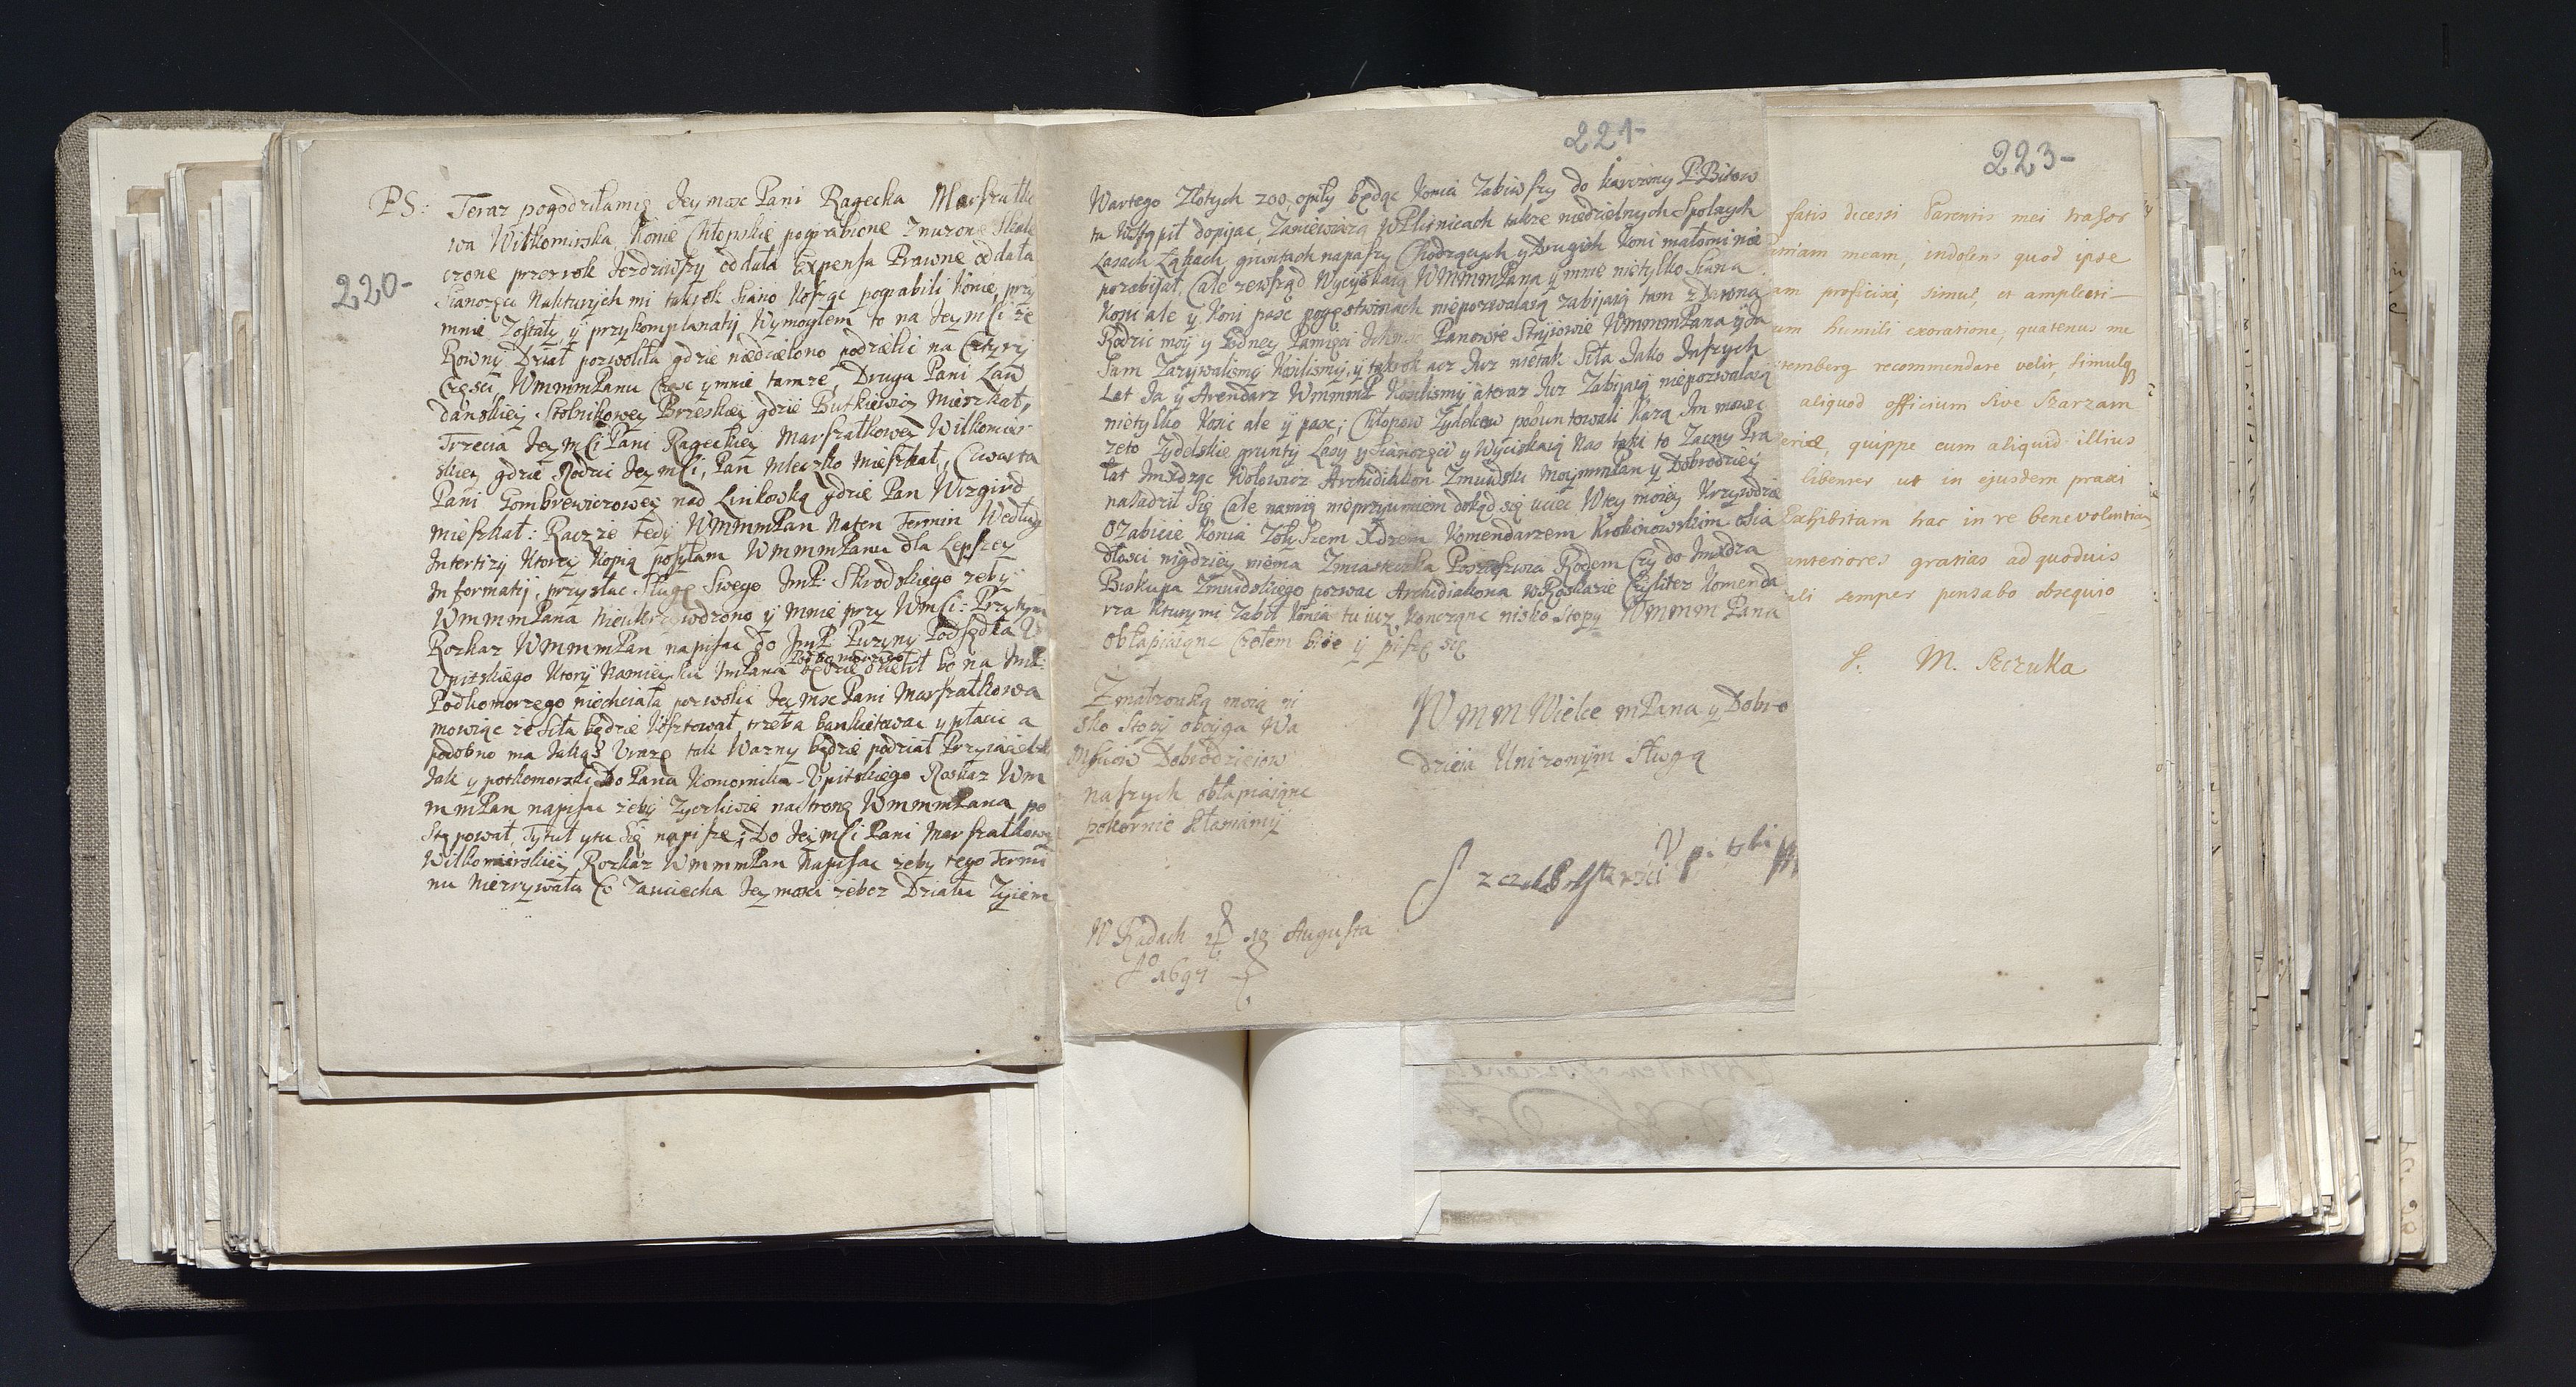 220-
PS: Teraz pogodziłamię Jeymosc Pani Ragecka Marszałko
wa Wiłkomirska, Konie Chłopskie pograbione Znużone Skale
czone przez rok Jezdziwszy oddała Expensa Prawne oddała
Sianozęci Nakturych mi takrok Siano Kosząc pograbili Konie, przy
mnie Zostały, ÿ przykomplanatÿ Wymogłem to na JeymSci że
Rowny Dział pozwoliła gdzie niedzielono podzielic na Cztyrÿ
Częsci, WmmmPanu Częsc ymnie tamże, Druga Pani Ław
danskieÿ Stolnikoweÿ Brzeskieÿ gdzie Butkiewicz Mieszkał,
Trzecia JeymSci Pani Rageckieÿ Marszałkoweÿ Wiłkomir
skieÿ gdzie Rodzic JeymSci, Pan Mleczko Mieszkał, Czwarta
Pani Gombrewiczoweÿ nad Linkowką gdzie Pan Wizgird
mieszkał: Raczże tedÿ WmmmPan Naten Termin Według
Intertizÿ Ktoreÿ Kopią posyłam WmmmPanu dla Lepszeÿ
Informatiÿ, przysłac Sługę Swego ImP: Skrodzkiego żebÿ
WmmmPana Nieukrzywdzono ÿ Mnie przy WmSci: Przytym
Rozkaz WmmmPan napisac do ImP: Puzyny Podsędka
Upitskiego Ktorÿ Namieysku ImPana Podkomorzego będzie dzielił bo na ImP:
Podkomorzego niechciała pozwolic Jeymsc Pani Marszałkowa
mowiąc że Siła będzie Kosztował, trzeba bankietowac y płacic a
podobno ma Jakąs Urazę tak Wazny będzie podział Przyiacielski
Jak y potkomorski, Do Pana Komornika Upitskiego Roskaz Wm
mmPan napisac żebÿ Zyczliwie nastronę WmmmPana po
stępował, Tytuł ytu Się napisze; Do JeymSci Pani Marszałkoweÿ
Wiłkomirskieÿ Rozkaz WmmmPan Napisac żeby tego Termi
nu Niezrywała Co Zauciecha Jeymosci żebez Działu Zÿiem
221-
Wartego Złotych 200, opiły będąc Konia Zabiwszy do karczmy P: Bitow
ta Wstąpił dopijac, Zaniewiażą WPlisnicach także niedzielnych Spolnych
Lasach Łąkach gruntach napaszy Chodzących y Drugich Koni małomi nie
pozabijał Cale zewsząd Wycyskaią WMmmPana ÿ mnie nietylko Siana
Kosic ale ÿ Koni pasc pogęstwinach niepozwalaią zabijaią tam zDawna
Rodzic moÿ y Edneÿ Pamięci Panowie Stryiowie WmmmPana ÿ Ja
Sam Zazywalismÿ Kosilismÿ, ÿ takrok acz Juz nietak Siła Jako Inszych
Let Ja ÿ Arendarz WmmmP Kosilismÿ ateraz Juz Zabijaią niepozwalaią
nietylko Kosic ale ÿ pasc; Chłopow Zydelow pobuntowali Każą Im mowic
żeto Zydelskie grunty Lasy y Sianozęci ÿ Wyciskaią Nas taki to Zacny Pra
łat Imxdząc Wołowicz Archidiakon Zmudzki Moymmpan y Dobrodzieÿ
nasadził Się Cale namię nieprzyumiem dokąd się uciec Wtey moieÿ Krzywdzie
Ozabicie Konia Zołyszem Xdzem Komendarzem Krokinowskim osia
dłosci nigdzieÿ niema Zmiasteczka Poszyszwia Rodem Czy do Imxdza
Biskupa Zmudskiego pozwac Archidiakona wRoskazie Czyliteż Komenda
rza Kturymi Zabił Konia tu iuz Koncząnc nisko Stopy WMmm Pana
obłapiaiąnc Czołem biie ÿ piszę się
Zmałzonką moią ni
sko Stopÿ oboÿga Wa
Msciow Dobrodzieiow
naszych obłapiaiąnc
pokornie kłaniamÿ
WmmWielce mPana y Dobro
dzieia Unizonÿm Sługą
W Radach 12 Augusta
A° 1694
223-
fatis decessi Parentis mei trasor
meam, indolens quod ipse
proficisci, simul, et amplecti—
um humili exoratione quatenus me
temberg recommendare velit simulq
aliquod officium sive Szarzam
quippe cum aliquid illius
libenter ut in ejusdem praxi
Exhibitam hac in re benevolentiam
anteriores gratias ad quoduis
ali semper pensabo obsequio
S. M. Szczuka